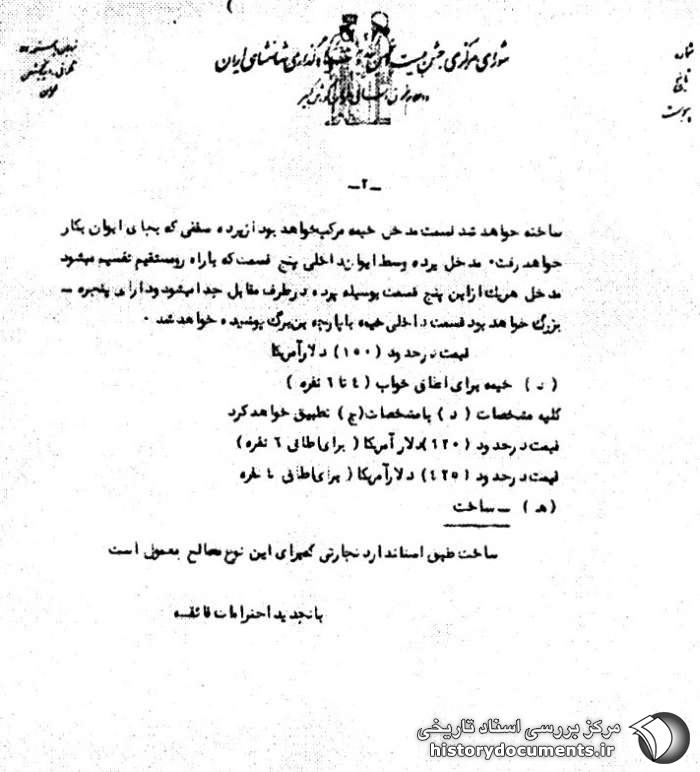 شماره
تاریخ
پیوست
شورای مرکزی جشن شاهنشاهی ایران
تهران
تلگرافی
تلفن
ـ۲ـ
ساخته خواهد شد قسمت مدخل خیمه مرکب خواهد بود از پرده سقفی که بجای ایوان بکار
خواهد رفت۰ مدخل پرده وسط ایوان داخلی پنج قسمت که با راه رو مستقیم تقسیم میشود
مدخل هریك از این پنج قسمت بوسیله پرده در طرف مقابل جدا میشود ودارای پنجره ـ
بزرگ خواهد بود قسمت داخلی خیمه با پارچه بزرگ پوشیده خواهد شد ۰
قیمت در حدود (۱۵۰) دلار آمریکا
( د ) خیمه برای اطاق خواب ( ٤ تا ٦ نفره )
کلیه مشخصات ( د ) با مشخصات (ج) تطبیق خواهد کرد
قیمت در حدود ( ) دلار آمریکا ( برای اطاق ٦ نفره )
قیمت در حدود (٤۲٥) دلار آمریکا ( برای اطاق ٤ نفره
( هـ ) ــ ساخت
ساخت طبق استاندارد تجارتی که برای این نوع مصالح معمول است
با تجدید احترامات فائقه
مرکز بررسی اسناد تاریخی
historydocuments.ir